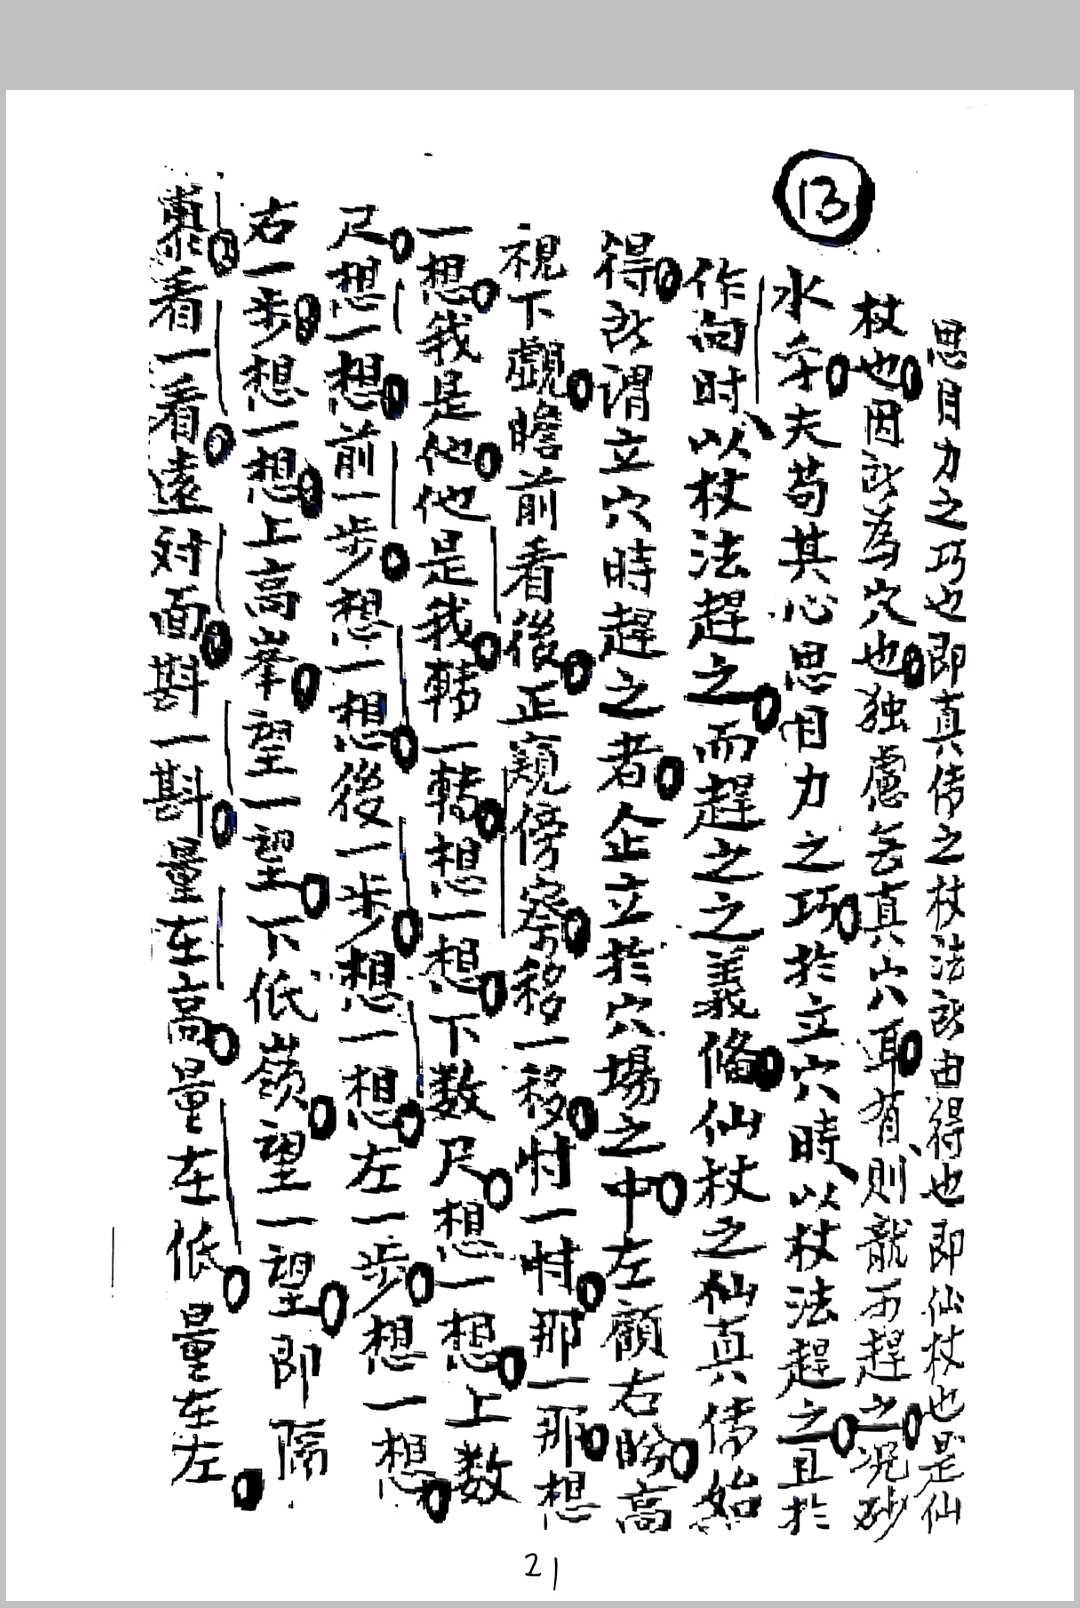 13
思目力之巧也即真傳之杖法所由得也即仙杖也是仙
杖也因所為穴也独慮无真穴耳有、則龍不趕之況砂
水乎夫苟其心思目力之巧於立穴時、以杖法趕之且於
作向时、以杖法趕之而趕之之義備仙杖之仙真傳始
得所谓立穴時趕之者企立於穴場之中左顧右盼高
視下觀瞻前看後正窺傍察移一移忖一忖那一那想
一想我是他他是我轉一轉想一想下数尺想一想上数
尺想一想前一步想一想後一步想一想左一步想一想
右一步想一想上高峯望一望下低嶺望一望即隔
看一看遠对面斟一斟量在高量在低量在左
21